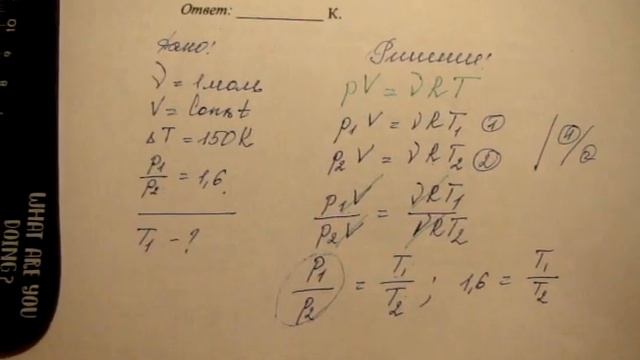 Ответ: ____________ К.
Дано:
ν = 1 моль
V = Const
ΔT = 150 К
p₁/p₂ = 1,6
T₁ - ?
Решение:
pV = νRT
p₁V = νRT₁ ①
p₂V = νRT₂ ②
①/②
p₁V/p₂V = νRT₁/νRT₂
p₁/p₂ = T₁/T₂ ; 1,6 = T₁/T₂
WHAT ARE YOU
DOING?
8 9 10